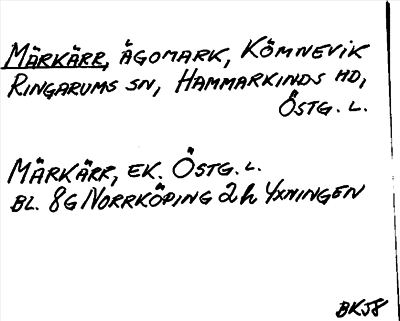 MÄRKÄRR, ÄGOMARK, KÖMNEVIK
RINGARUMS SN, HAMMARKINDS HD,
ÖSTG. L.
MÄRKÄRR, EK. ÖSTG. L.
BL. 8G NORRKÖPING 2h YXNINGEN
BKJ8